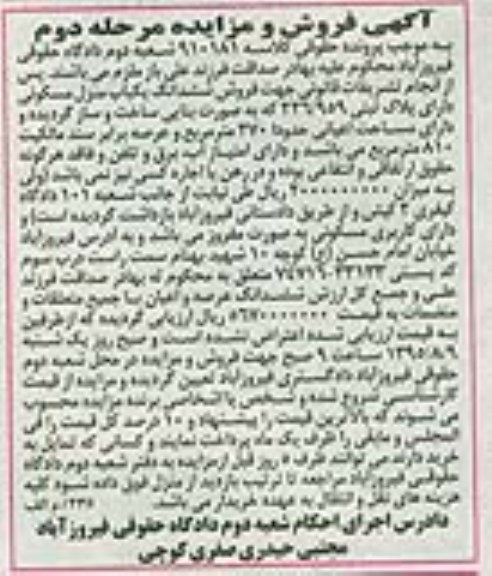 آگهی فروش و مزایده مرحله دوم
به موجب پرونده حقوقی کلاسه ۹۱۰۱۸۱ شعبه دوم دادگاه حقوقی
فیروزآباد محکوم علیه بهادر صداقت فرزند علی باز ملزم می باشند پس
از انجام تشریفات قانونی جهت فروش ششدانگ یکباب منزل مسکونی
دارای پلاک ثبتی ۳۳۶/۹۵۹ که به صورت بنایی ساخت و ساز گردیده و
دارای مساحت اعیانی حدودا ۲۷۰ مترمربع و عرصه برابر سند مالکیت
۸۱۰ مترمربع می باشند و دارای امتیاز آب، برق و تلفن و فاقد هرگونه
حقوق ارتفاقی و انتفاعی بوده و در رهن یا اجاره کسی نیز نمی باشد (ولی
به میزان ریال طی نیابت از جانب شعبه ۱۰۱ دادگاه
کیفری ۲ کیش و از طریق دادستانی فیروزآباد بازداشت گردیده است) و
دارای کاربری مسکونی به صورت مفروز می باشد و به آدرس فیروزآباد
خیابان امام حسین (ع) کوچه ۱۰ شهید بهنام سمت راست درب سوم
کد پستی ۷۴۷۱۶۰۴۳۱۳۳ متعلق به محکوم له بهادر صداقت فرزند
علی و جمع کل ارزش ششدانگ عرصه و اعیان با جمیع متعلقات و
منضمات به قیمت ریال ارزیابی گردیده که از طرفین
به قیمت ارزیابی شده اعتراضی نشده است و صبح روز یک شنبه
۱۳۹۵/۸/۹ ساعت ۹ صبح جهت فروش و مزایده در محل شعبه دوم
حقوقی فیروزآباد دادگستری فیروزآباد تعیین گردیده و مزایده از قیمت
کارشناسی شروع شده و شخص یا اشخاصی برنده مزایده محسوب
می شوند که بالاترین قیمت را پیشنهاد و ۱۰ درصد کل قیمت را فی
المجلس و مابقی را ظرف یک ماه پرداخت نمایند و کسانی که تمایل به
خرید دارند می توانند ظرف ۵ روز قبل از مزایده به دفتر شعبه دوم دادگاه
حقوقی فیروزآباد مراجعه تا ترتیب بازدید از منزل فوق داده شود کلیه
هزینه های نقل و انتقال به عهده خریدار می باشد. م الف
دادرس اجرای احکام شعبه دوم دادگاه حقوقی فیروزآباد
مجتبی حیدری صفری کوچی